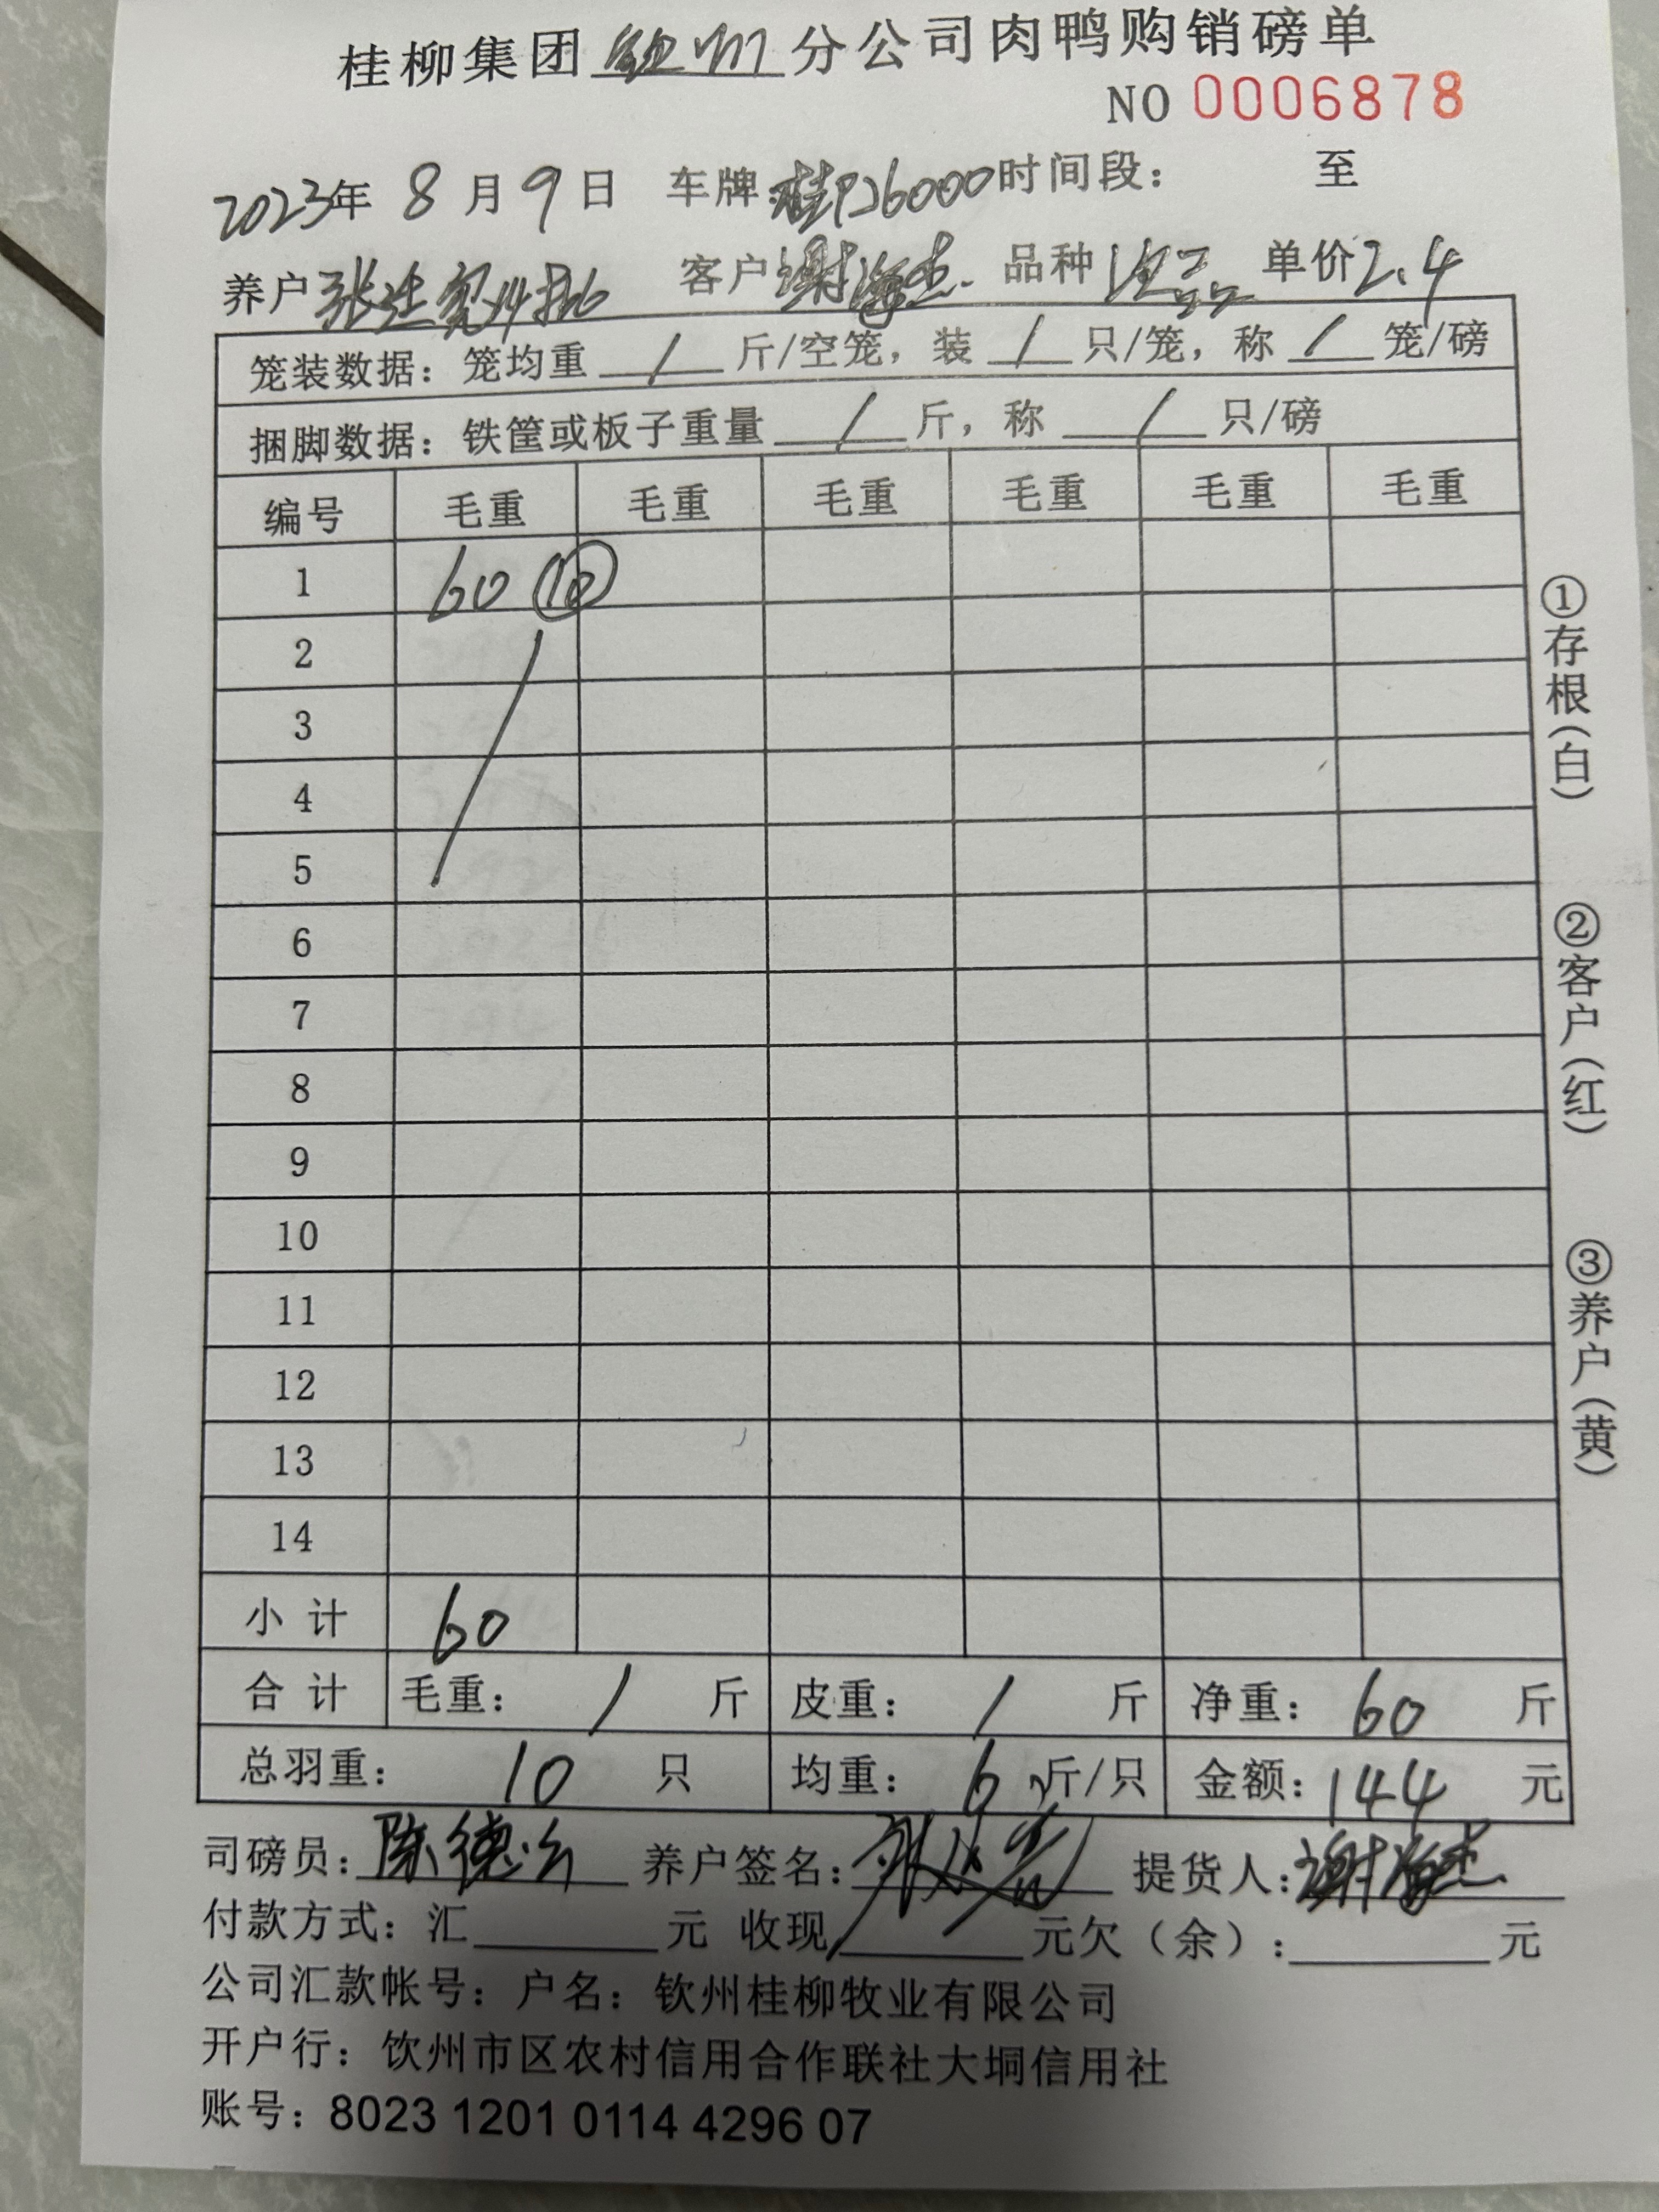 桂柳集团钦州分公司肉鸭购销磅单
NO 0006878
2023年 8月9日 车牌:桂P26000 时间段: 至
养户 客户谢海杰 品种 次品 单价2.4
笼装数据: 笼均重 / 斤/空笼, 装 / 只/笼, 称 / 笼/磅
捆脚数据: 铁筐或板子重量 / 斤, 称 / 只/磅
编号 毛重 毛重 毛重 毛重 毛重 毛重
1 60 ⑩
2
3
4
5
6
7
8
9
10
11
12
13
14
小计 60
合计 毛重: / 斤 皮重: / 斤 净重: 60 斤
总羽重: 10 只 均重: 6 斤/只 金额: 144 元
司磅员: 陈德 养户签名: 提货人: 谢海杰
付款方式: 汇 元 收现 元欠(余): 元
公司汇款帐号: 户名: 钦州桂柳牧业有限公司
开户行: 饮州市区农村信用合作联社大垌信用社
账号: 8023 1201 0114 4296 07
①存根(白)
②客户(红)
③养户(黄)